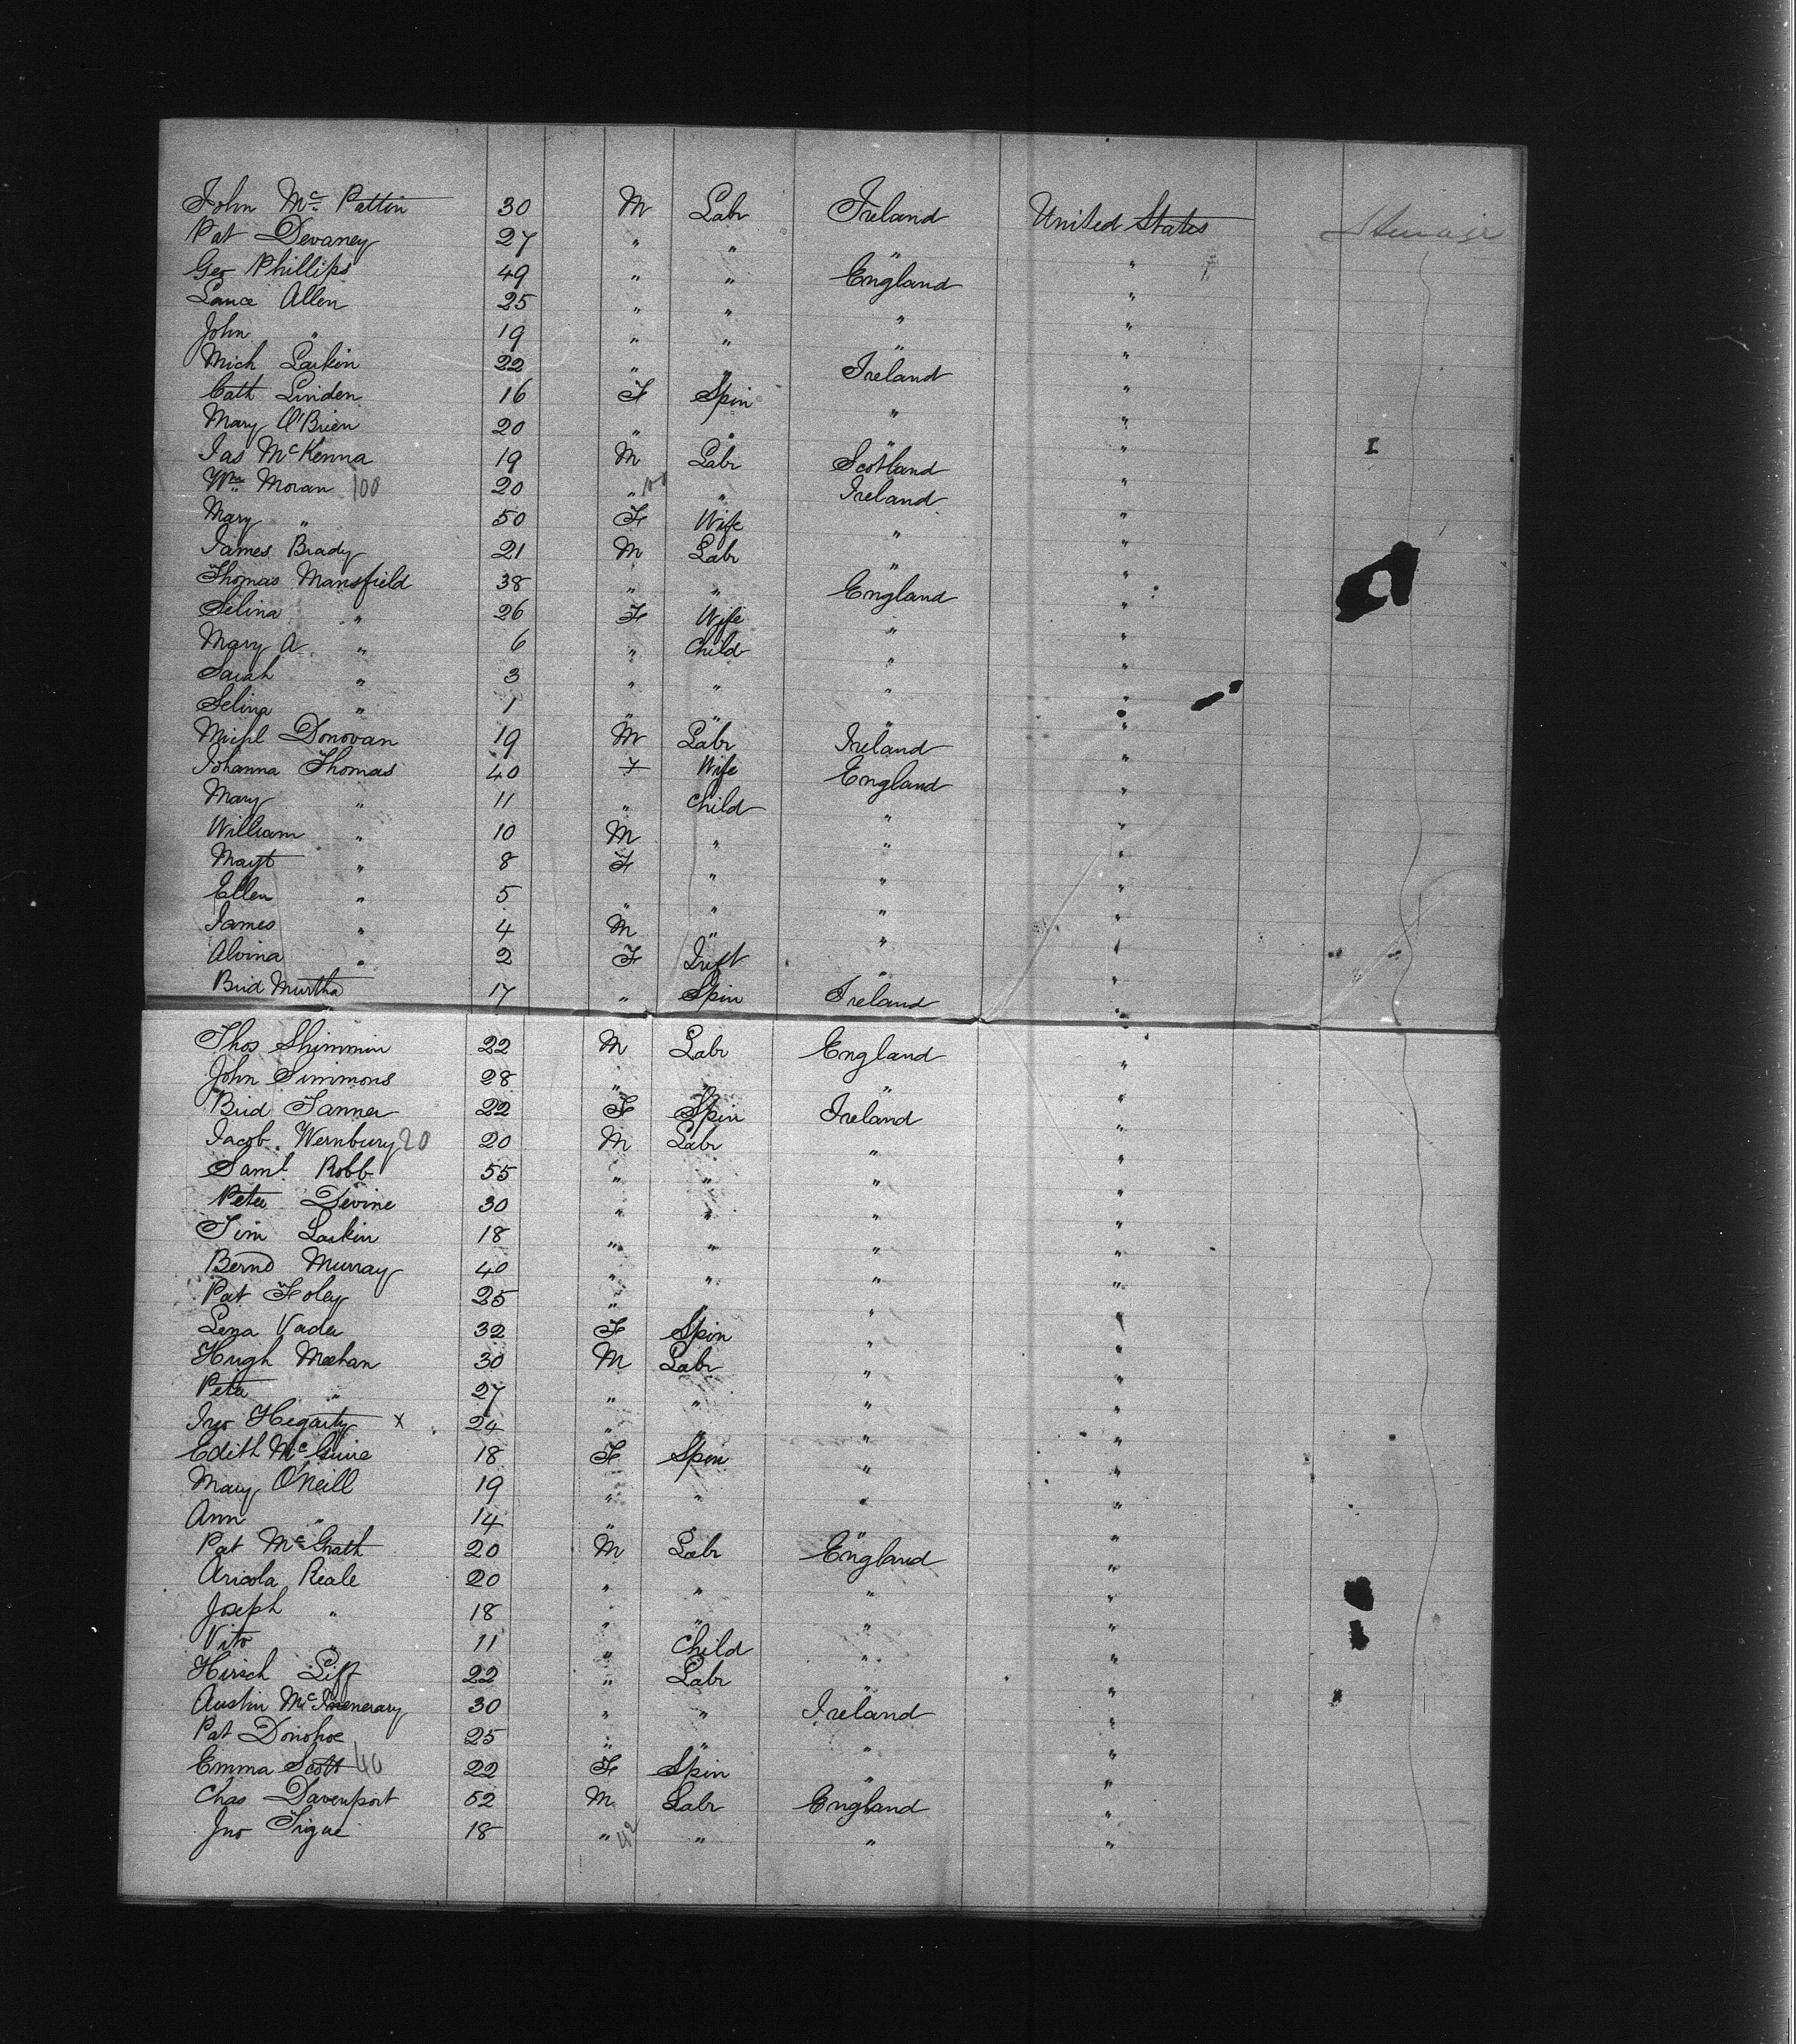 John Mc Pattin 30 M Labr Ireland United States Steerage
Pat Devaney 27 " " " "
Geo Phillips 49 " " England "
Lance Allen 25 " " " "
John " 19 " " " "
Mich Larkin 22 " " Ireland "
Cath Linden 16 F Spin " "
Mary O'Brien 20 " " " "
Jas McKenna 19 M Labr Scotland "
Wm Moran 100 20 " 100 " Ireland "
Mary " 50 F Wife " "
James Brady 21 M Labr " "
Thomas Mansfield 38 " " England "
Selina " 26 F Wife " "
Mary A " 6 " Child " "
Sarah " 3 " " " "
Selina " 1 " " " "
Michl Donovan 19 M Labr Ireland "
Johanna Thomas 40 F Wife England "
Mary " 11 " Child " "
William " 10 M " " "
Margt " 8 F " " "
Ellen " 5 " " " "
James " 4 M " " "
Alvina " 2 F Inft " "
Brid Murtha 17 " Spin Ireland "
Thos Shimmin 22 M Labr England "
John Simmons 28 " " " "
Brid Tanner 22 F Spin Ireland "
Jacob Wernbury 20 20 M Labr " "
Saml Robb 55 " " " "
Peter Devine 30 " " " "
Tim Larkin 18 " " " "
Bernd Murray 40 " " " "
Pat Foley 25 " " " "
Lena Vader 32 F Spin " "
Hugh Meehan 30 M Labr " "
Peter " 27 " " " "
Jno Hegarty x 24 " " " "
Edith McGuire 18 F Spin " "
Mary O'Neill 19 " " " "
Ann " 14 " " " "
Pat McGrath 20 M Labr England "
Aricola Reale 20 " " " "
Joseph " 18 " " " "
Vito " 11 " Child " "
Hirsch Lift 22 " Labr " "
Austin 30 " " Ireland "
Pat Donohoe 25 " " " "
Emma Scott 40 22 F Spin " "
Chas Davenport 52 M Labr England "
Jno Tigue 18 " 42 " " "